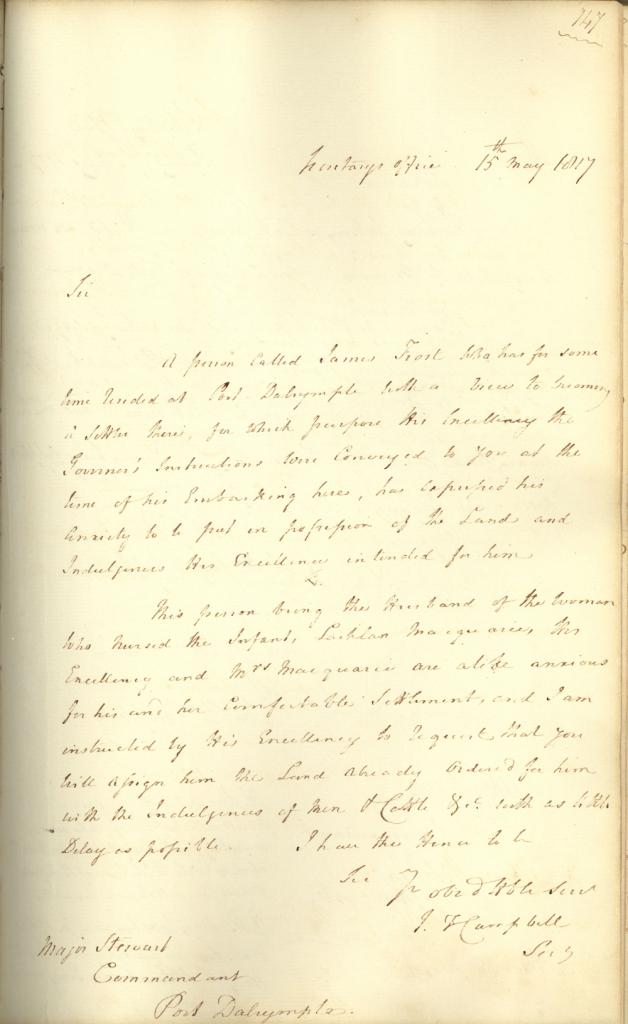 747
Secretarys Office 15th May 1817
Sir
A person called James Frost who has for some
time resided at Port Dalrymple with a View to becoming
a Settler there, for which purpose His Excellency the
Governor's Instructions were Conveyed to You at the
time of his Embarking here, has expressed his
Anxiety to be put in possession of the Land and
Indulgences His Excellency intended for him
This person being the Husband of the Woman
who nursed the Infant, Lachlan Macquarie, His
Excellency and Mrs Macquarie are alike anxious
for his and her Comfortable Settlement, and I am
instructed by His Excellency to request that You
will assign him the Land already Ordered for him
with the Indulgences of Men & Cattle &c. with as little
Delay as possible. I have the Honor to be
Sir Yr obed Hble Serv
J. T. Campbell
Secy
Major Stewart
Commandant
Port Dalrymple.